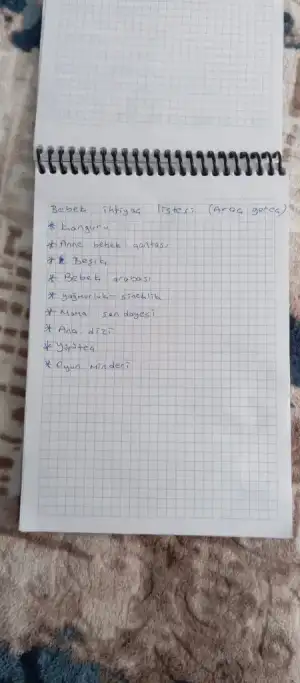 Bebek ihtiyaç listesi (Araç gereç)
* kanguru
* Anne bebek çantası
* Beşik
* Bebek arabası
* yağmurluk - sineklik
* Mama sandalyesi
* Ana dizi
* Yürüteç
* Oyun minderi